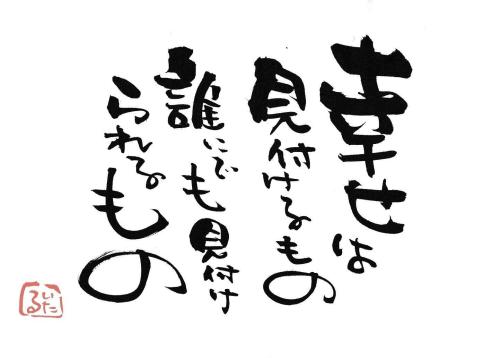 幸せは
見付けるもの
誰にでも見付け
られるもの